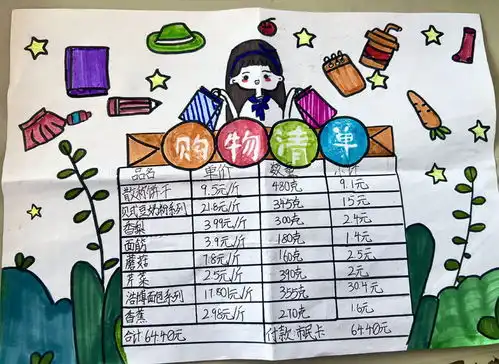 购物清单
品名 单价 数量 小计
散称饼干 9.5元/斤 480克 9.1元
贝式豆奶粉系列 21.8元/斤 345克 15元
香梨 3.99元/斤 300克 2.4元
面筋 3.9元/斤 180克 1.4元
蘑菇 7.8元/斤 160克 2.5元
芹菜 2.5元/斤 390克 2元
浩博面包系列 17.801元/斤 355克 30.4元
香蕉 2.98元/斤 270克 1.6元
合计 64.40元 付款 市民卡 64.40元